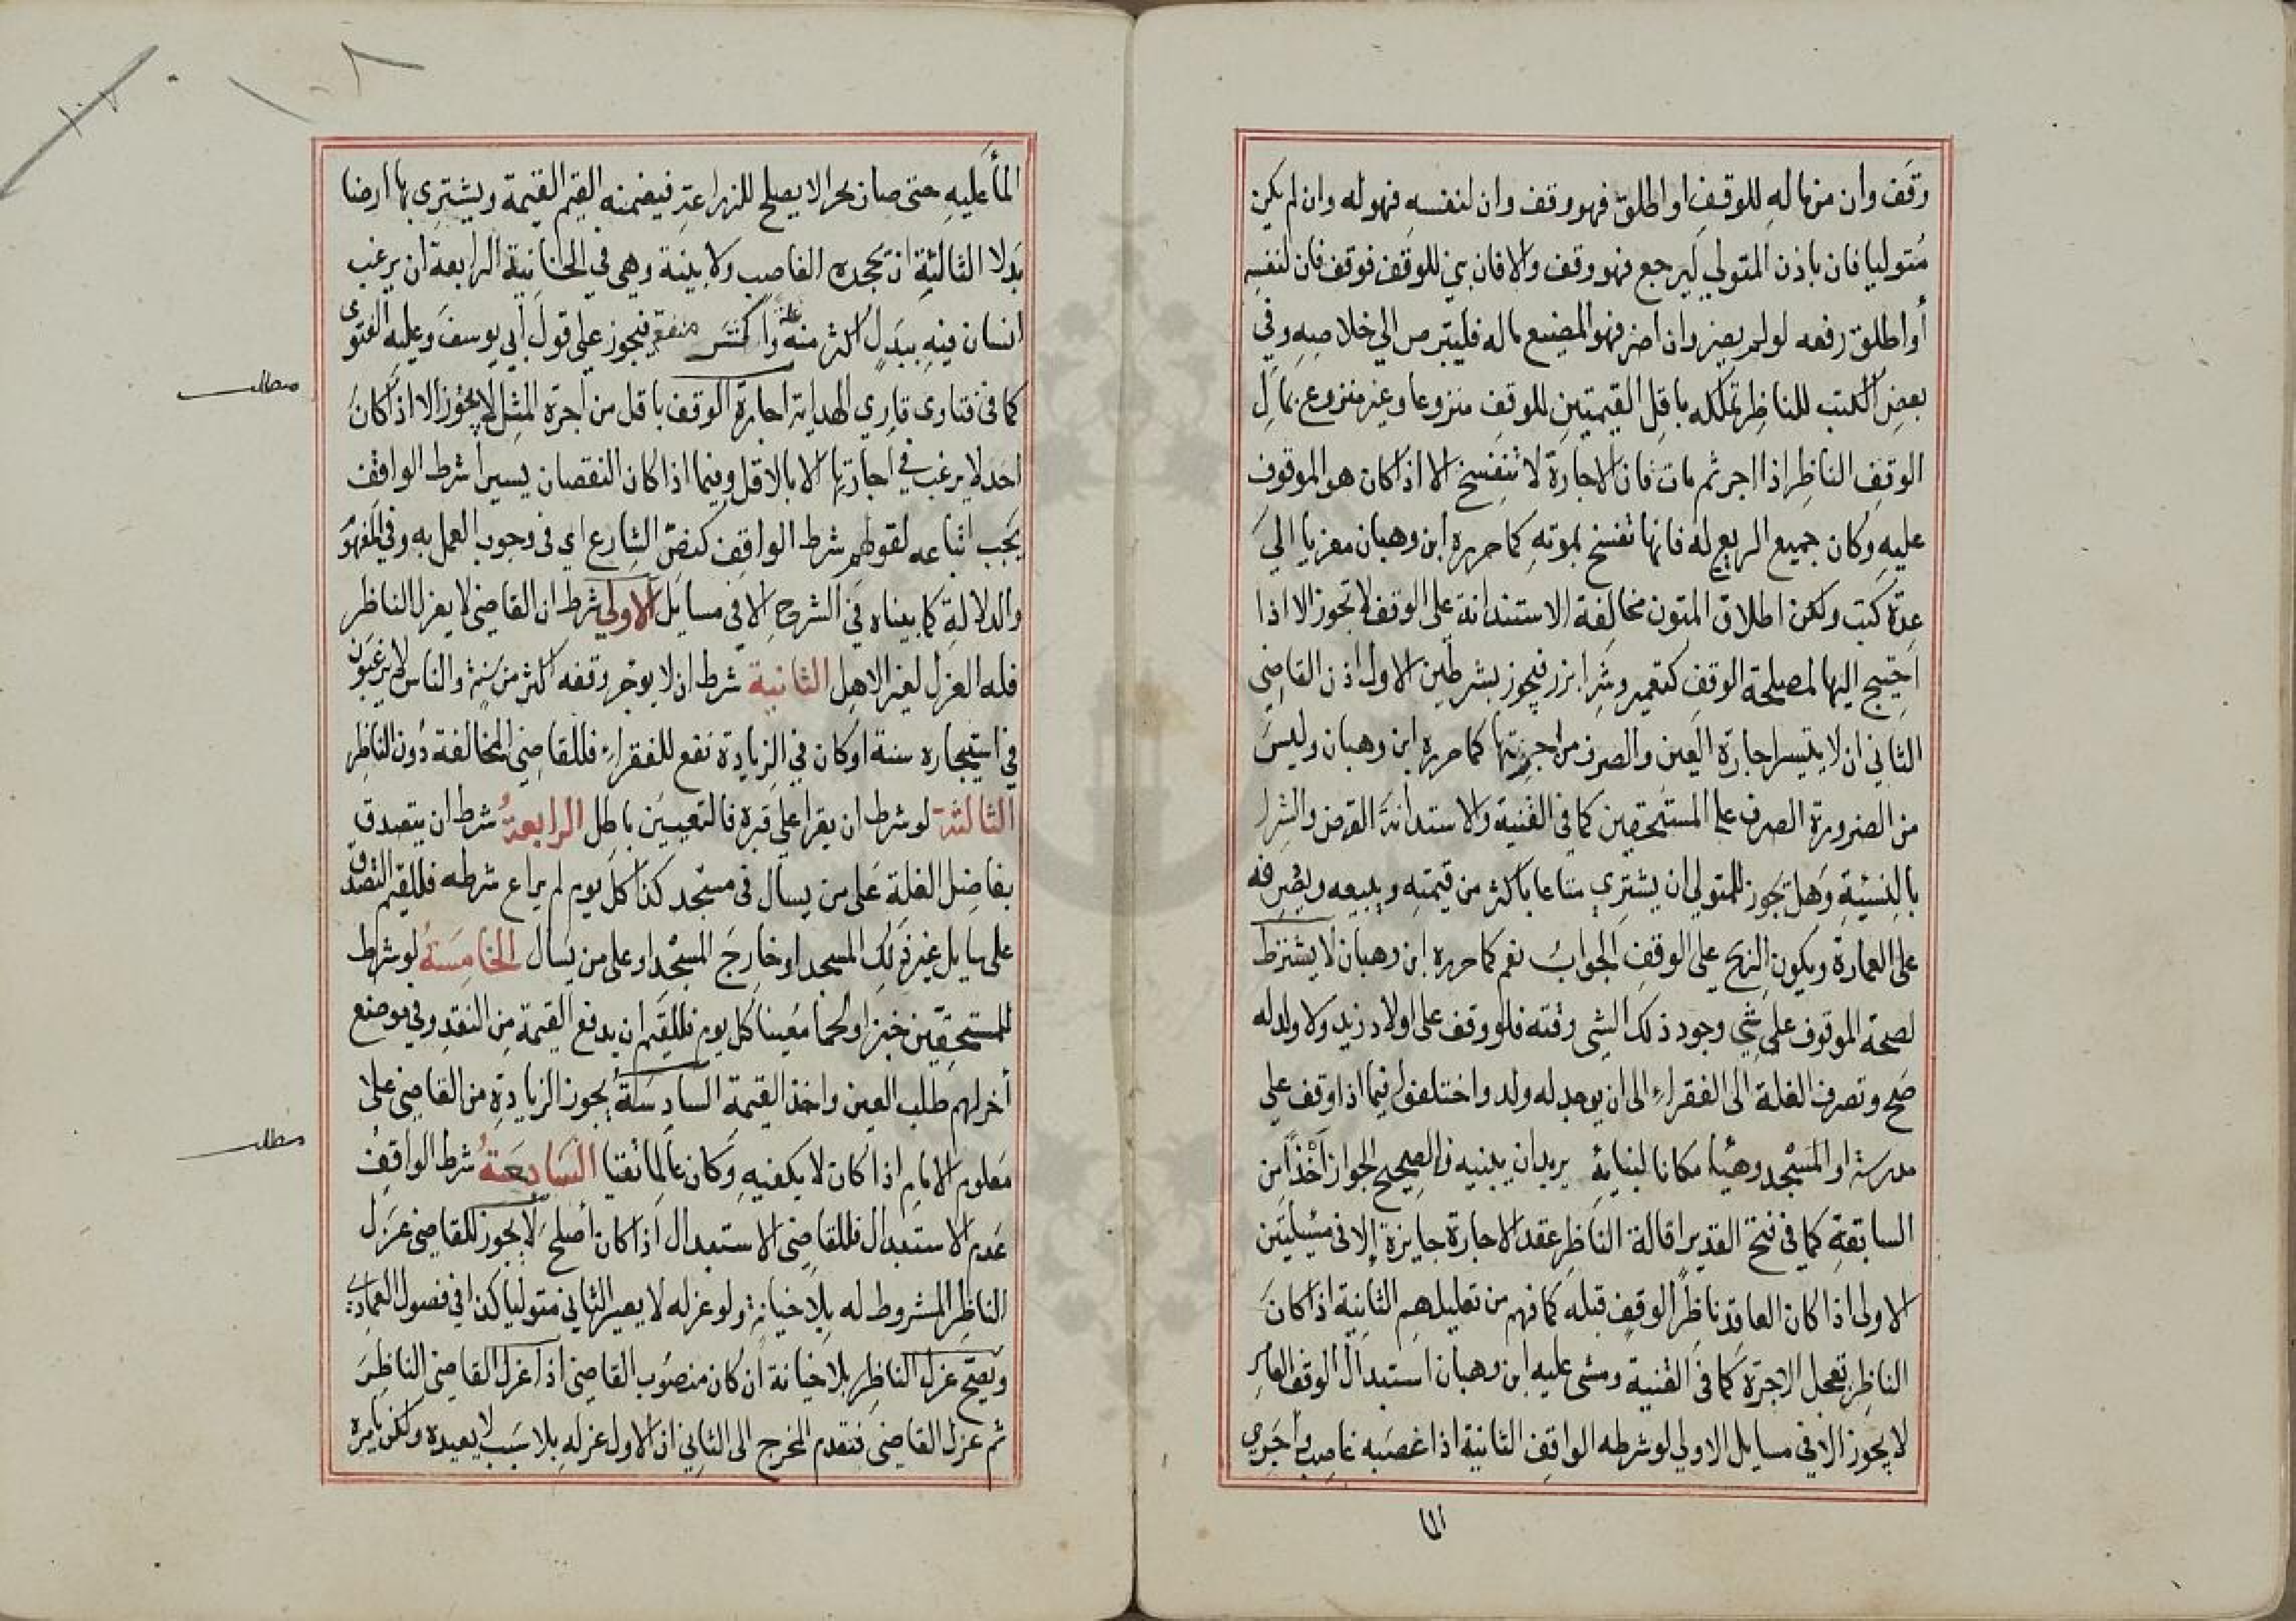 وقف وان من ماله للوقف او اطلق فهو وقف وان لنفسه فهو له وان لم يكن
متوليا فان باذن المتولي ليرجع فهو وقف والا فان بني للوقف فوقف فان لنفسه
أو اطلق رفعه لو لم يضر وان اضر فهو المضيع ماله فليتربص الي خلاصه وفي
بعض الكتب للناظر تملكه باقل القيمتين للوقف منزوعا وغير منزوع بمال
الوقف الناظر اذا اجر ثم مات فان الاجارة لا تنفسخ الا اذا كان هو الموقوف
عليه وكان جميع الريع له فانها تنفسخ بموته كما حرره ابن وهبان معزيا الي
عدة كتب ولكن اطلاق المتون مخالفة الاستندانة علي الوقف لا تجوز الا اذا
احتيج اليها لمصلحة الوقف كتعمير وشرا بزر فيجوز بشرطين الاول اذن القاضي
الثاني ان لا يتيسر اجارة العين والصرف من اجرتها كما حرره ابن وهبان وليس
من الضرورة الصرف علي المستحقين كما في القنية والاستدانة القرض والشرا
بالنسيئة وهل يجوز للمتولي ان يشتري متاعا باكثر من قيمته ويبيعه ويصرفه
علي العمارة ويكون الربح علي الوقف الجواب نعم كما حرره ابن وهبان لا يشترط
لصحة الموقوف علي شي وجود ذلك الشي وقته فلو وقف علي اولاد زيد ولا ولد له
صح وتصرف الغلة الى الفقراء الى ان يوجد له ولد واختلفوا فيما اذا وقف علي
مدرسة او المسجد وهيأ مكانا لبنائه يريد ان يبنيه والصحيح الجواز أخذا من
السابقة كما في فتح القدير اقالة الناظر عقد الاجارة جايزة الا في مسئلتين
الاولى اذا كان العاقد ناظر الوقف قبله كما فهم من تعليلهم الثانية اذا كان
الناظر تعجل الاجرة كما في القنية ومشى عليه ابن وهبان استبدال الوقف العامر
لا يجوز الا في مسايل الاولي لو شرطه الواقف الثانية اذا غصبه غاصب واجري
الما
المأ عليه حتى صار بحرا لا يصلح للزراعة فيضمنه القيم القيمة ويشتري بها ارضا
بدلا الثالثة ان يجحده الغاصب ولا بينة وهي في الخانية الرابعة ان يرغب
انسان فيه ببدل اكثر منه غلة واكثر منفعة فيجوز علي قول أبي يوسف وعليه الفتوى
كما في فتاوى قاري الهداية اجارة الوقف باقل من اجرة المثل لا يجوز الا اذا كان
احد لا يرغب في اجارتها الا بالاقل وفيما اذا كان النقصان يسيرا شرط الواقف
يجب اتباعه لقولهم شرط الواقف كنص الشارع اي في وجوب العمل به وفي المفهوم
والدلالة كما بيناه في الشرح الا في مسايل الاولي شرط ان القاضي لا يعزل الناظر
فله العزل لغير الاهل الثانية شرط ان لا يوجر وقفه اكثر من سنة والناس لا يرغبون
في استيجاره سنة او كان في الزيادة نفع للفقراء فللقاضي المخالفة دون الناظر
الثالثة لو شرط ان يقرا علي قبره فالتعيين باطل الرابعة شرط ان يتصدق
بفاضل الغلة على من يسأل في مسجد كذا كل يوم لم يراع شرطه فللقيم التصدق
على سايل غير ذلك المسجد او خارج المسجد او على من يسأل الخامسة لو شرط
للمستحقين خبزا ولحما معينا كل يوم فللقيم ان يدفع القيمة من النقد وفي موضع
أخر لهم طلب العين واخذ القيمة السادسة يجوز الزيادة من القاضي على
معلوم الامام اذا كان لا يكفيه وكان عالما تقيا السابعة شرط الواقف
عدم الاستبدال فللقاضي الاستبدال اذا كان أصلح لا يجوز للقاضي عزل
الناظر المشروط له بلا خيانة ولو عزله لا يصير الثاني متوليا كذا في فصول العمادي
ويصح عزل الناظر بلا خيانة ان كان منصوب القاضي اذا عزل القاضي الناظر
ثم عزل القاضي فتقدم المخرج الى الثاني ان الاول عزله بلا سبب لا يعيده ولكن يامره
مطلب
مطلب